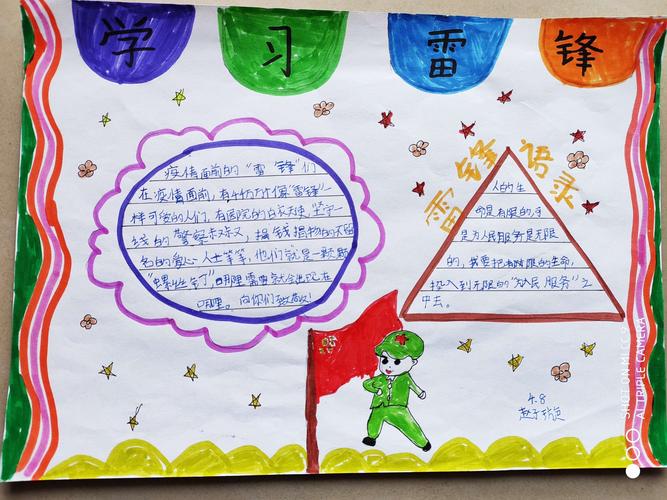 学 习 雷 锋
疫情面前的“雷 锋”们
在疫情面前,有千千万万像“雷锋”一
样可爱的人们,有医院的白衣天使,坚守一
线的警察叔叔,捐钱捐物的
名的爱心人士等等,他们就是一颗颗
“螺丝钉”哪里需要就会出现在
哪里。向你们致敬!
雷锋语录
人的生
命是有限的,可
是为人民服务是无限
的,我要把有限的生命,
投入到无限的“为人民服务”之
中去。
4.8
SHOT ON MI CC9
AI TRIPLE CAMERA